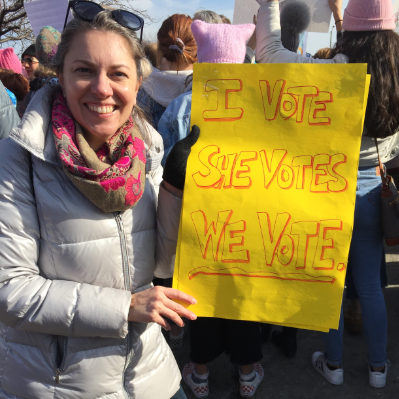 I VOTE
SHE VOTES
WE VOTE.